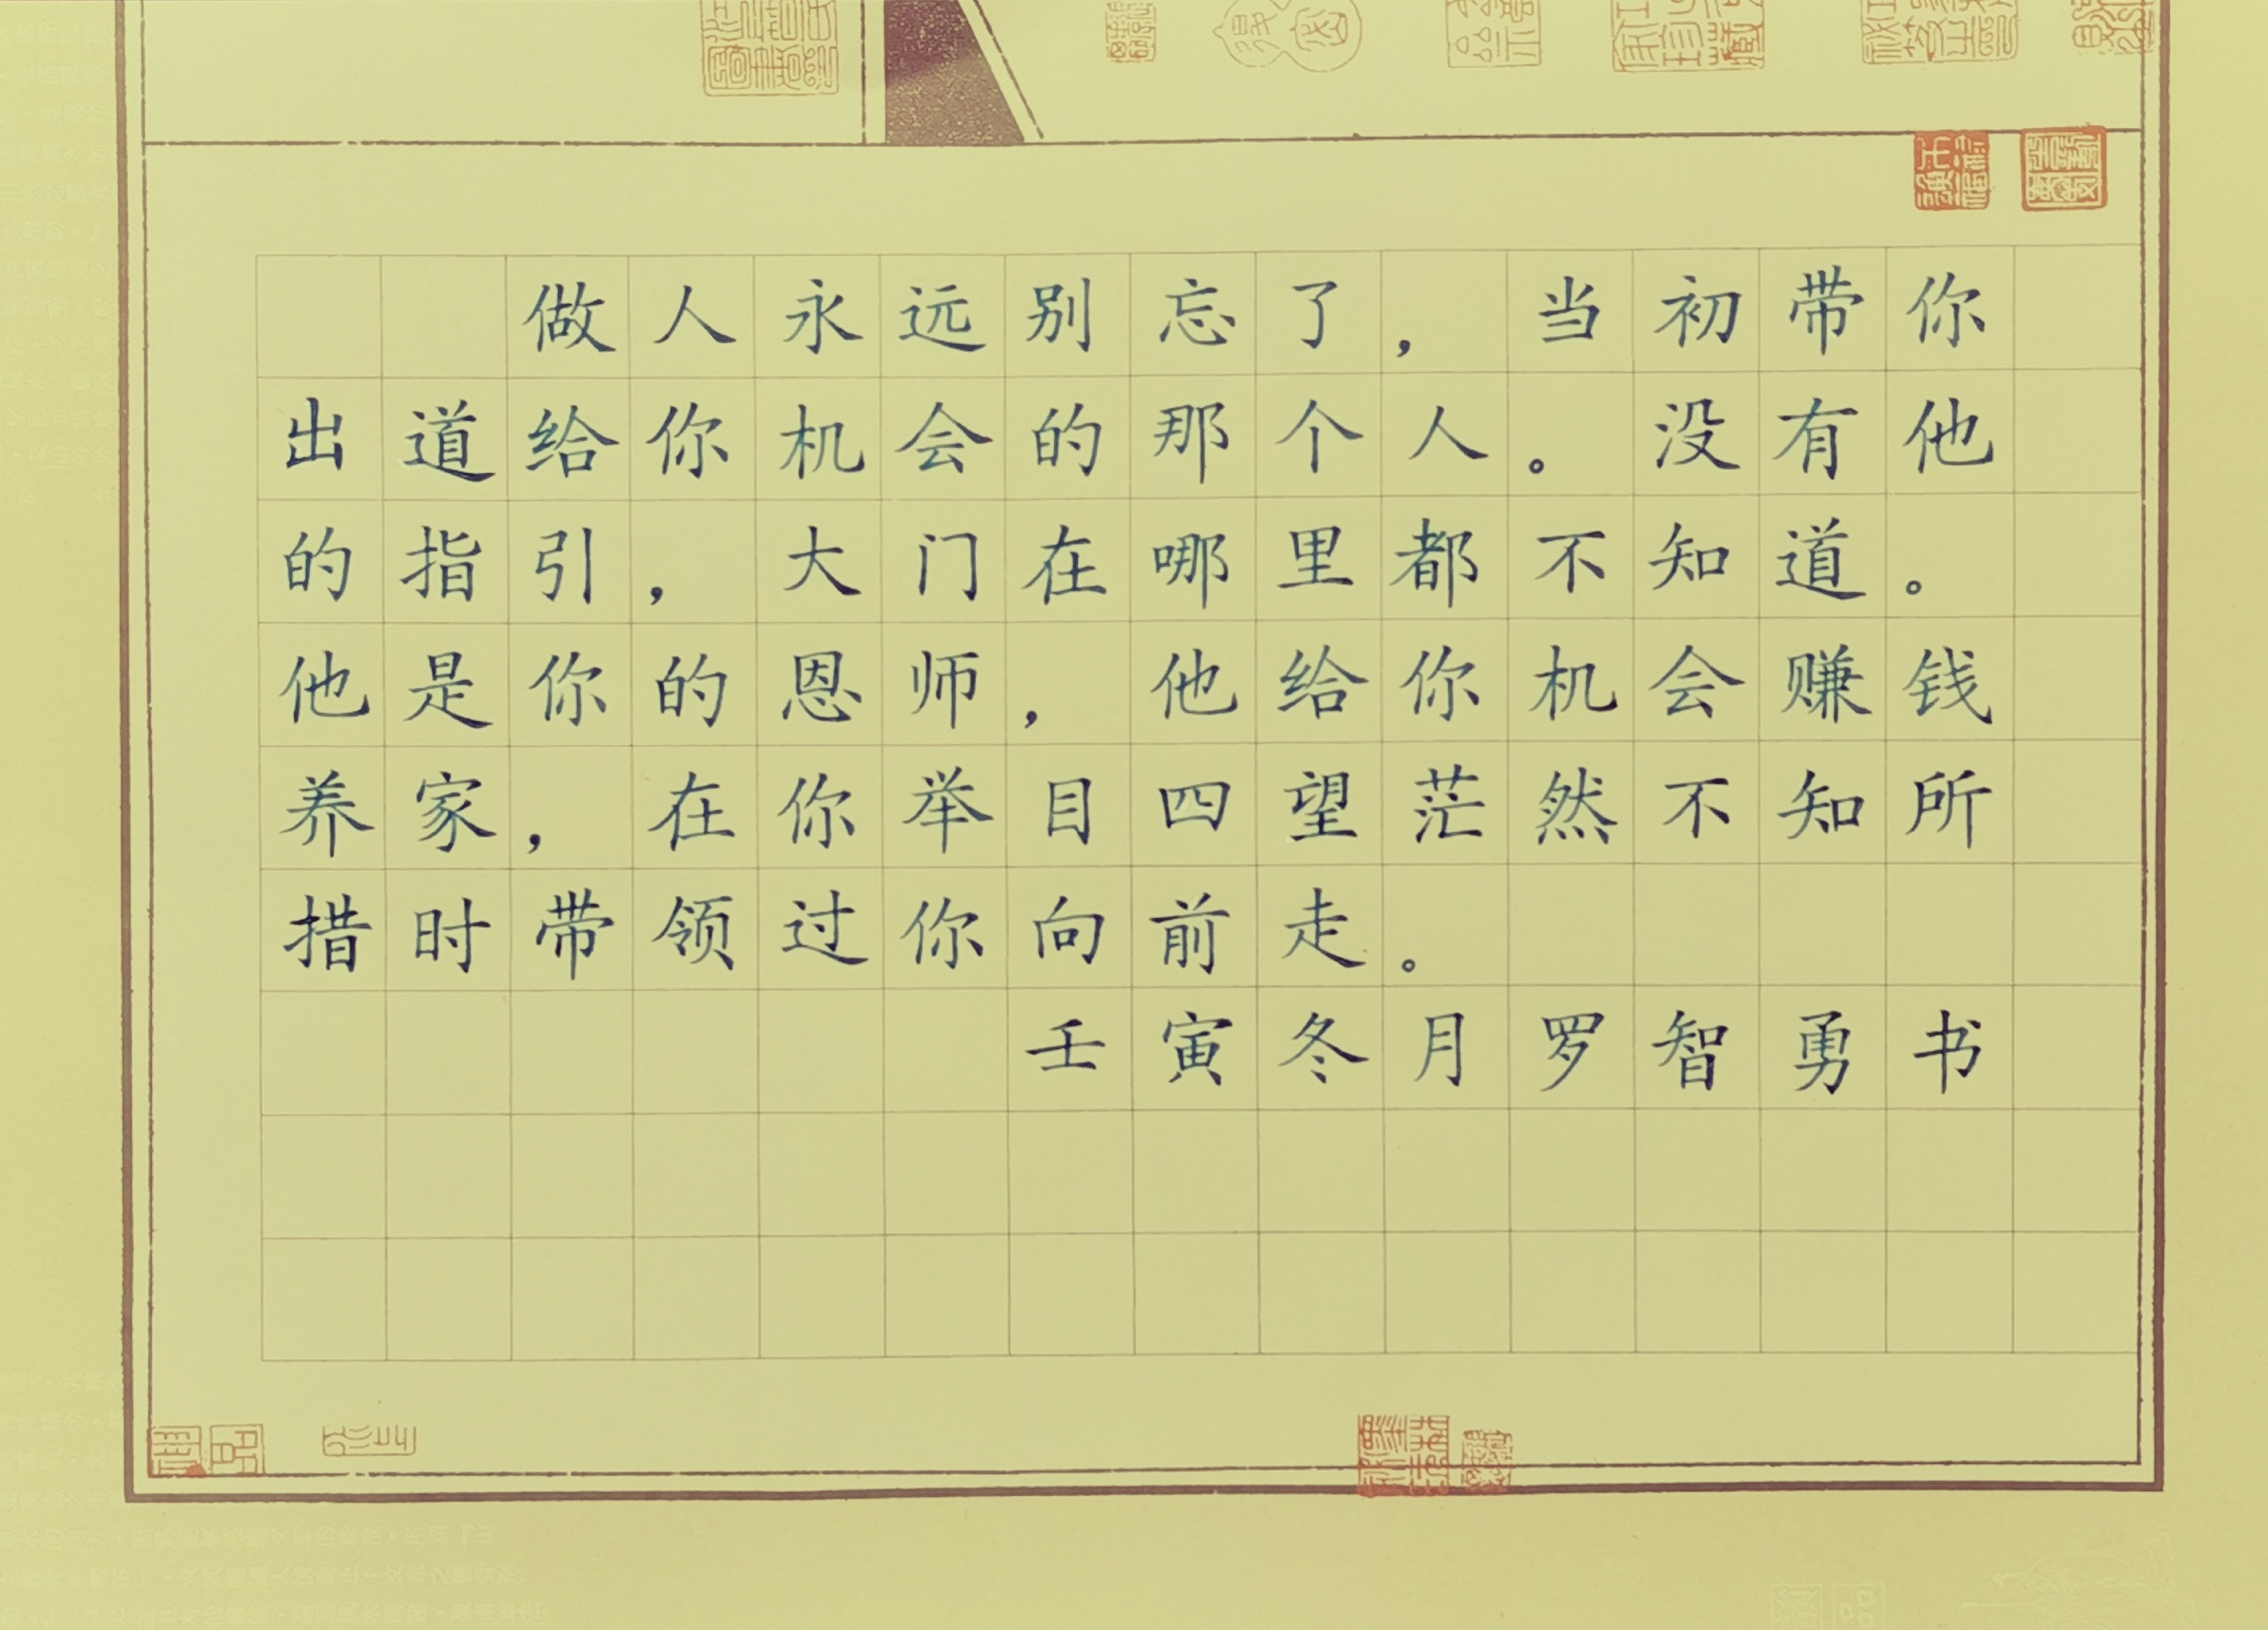 做人永远别忘了，当初带你
出道给你机会的那个人。没有他
的指引，大门在哪里都不知道。
他是你的恩师，他给你机会赚钱
养家，在你举目四望茫然不知所
措时带领过你向前走。
壬寅冬月罗智勇书